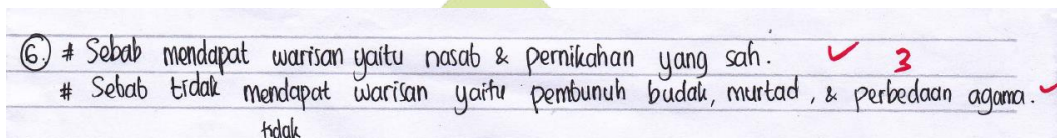 6. # Sebab mendapat warisan yaitu nasab & pernikahan yang sah. ✓ 3
# Sebab tidak mendapat warisan yaitu pembunuh budak, murtad, & perbedaan agama. ✓
tidak